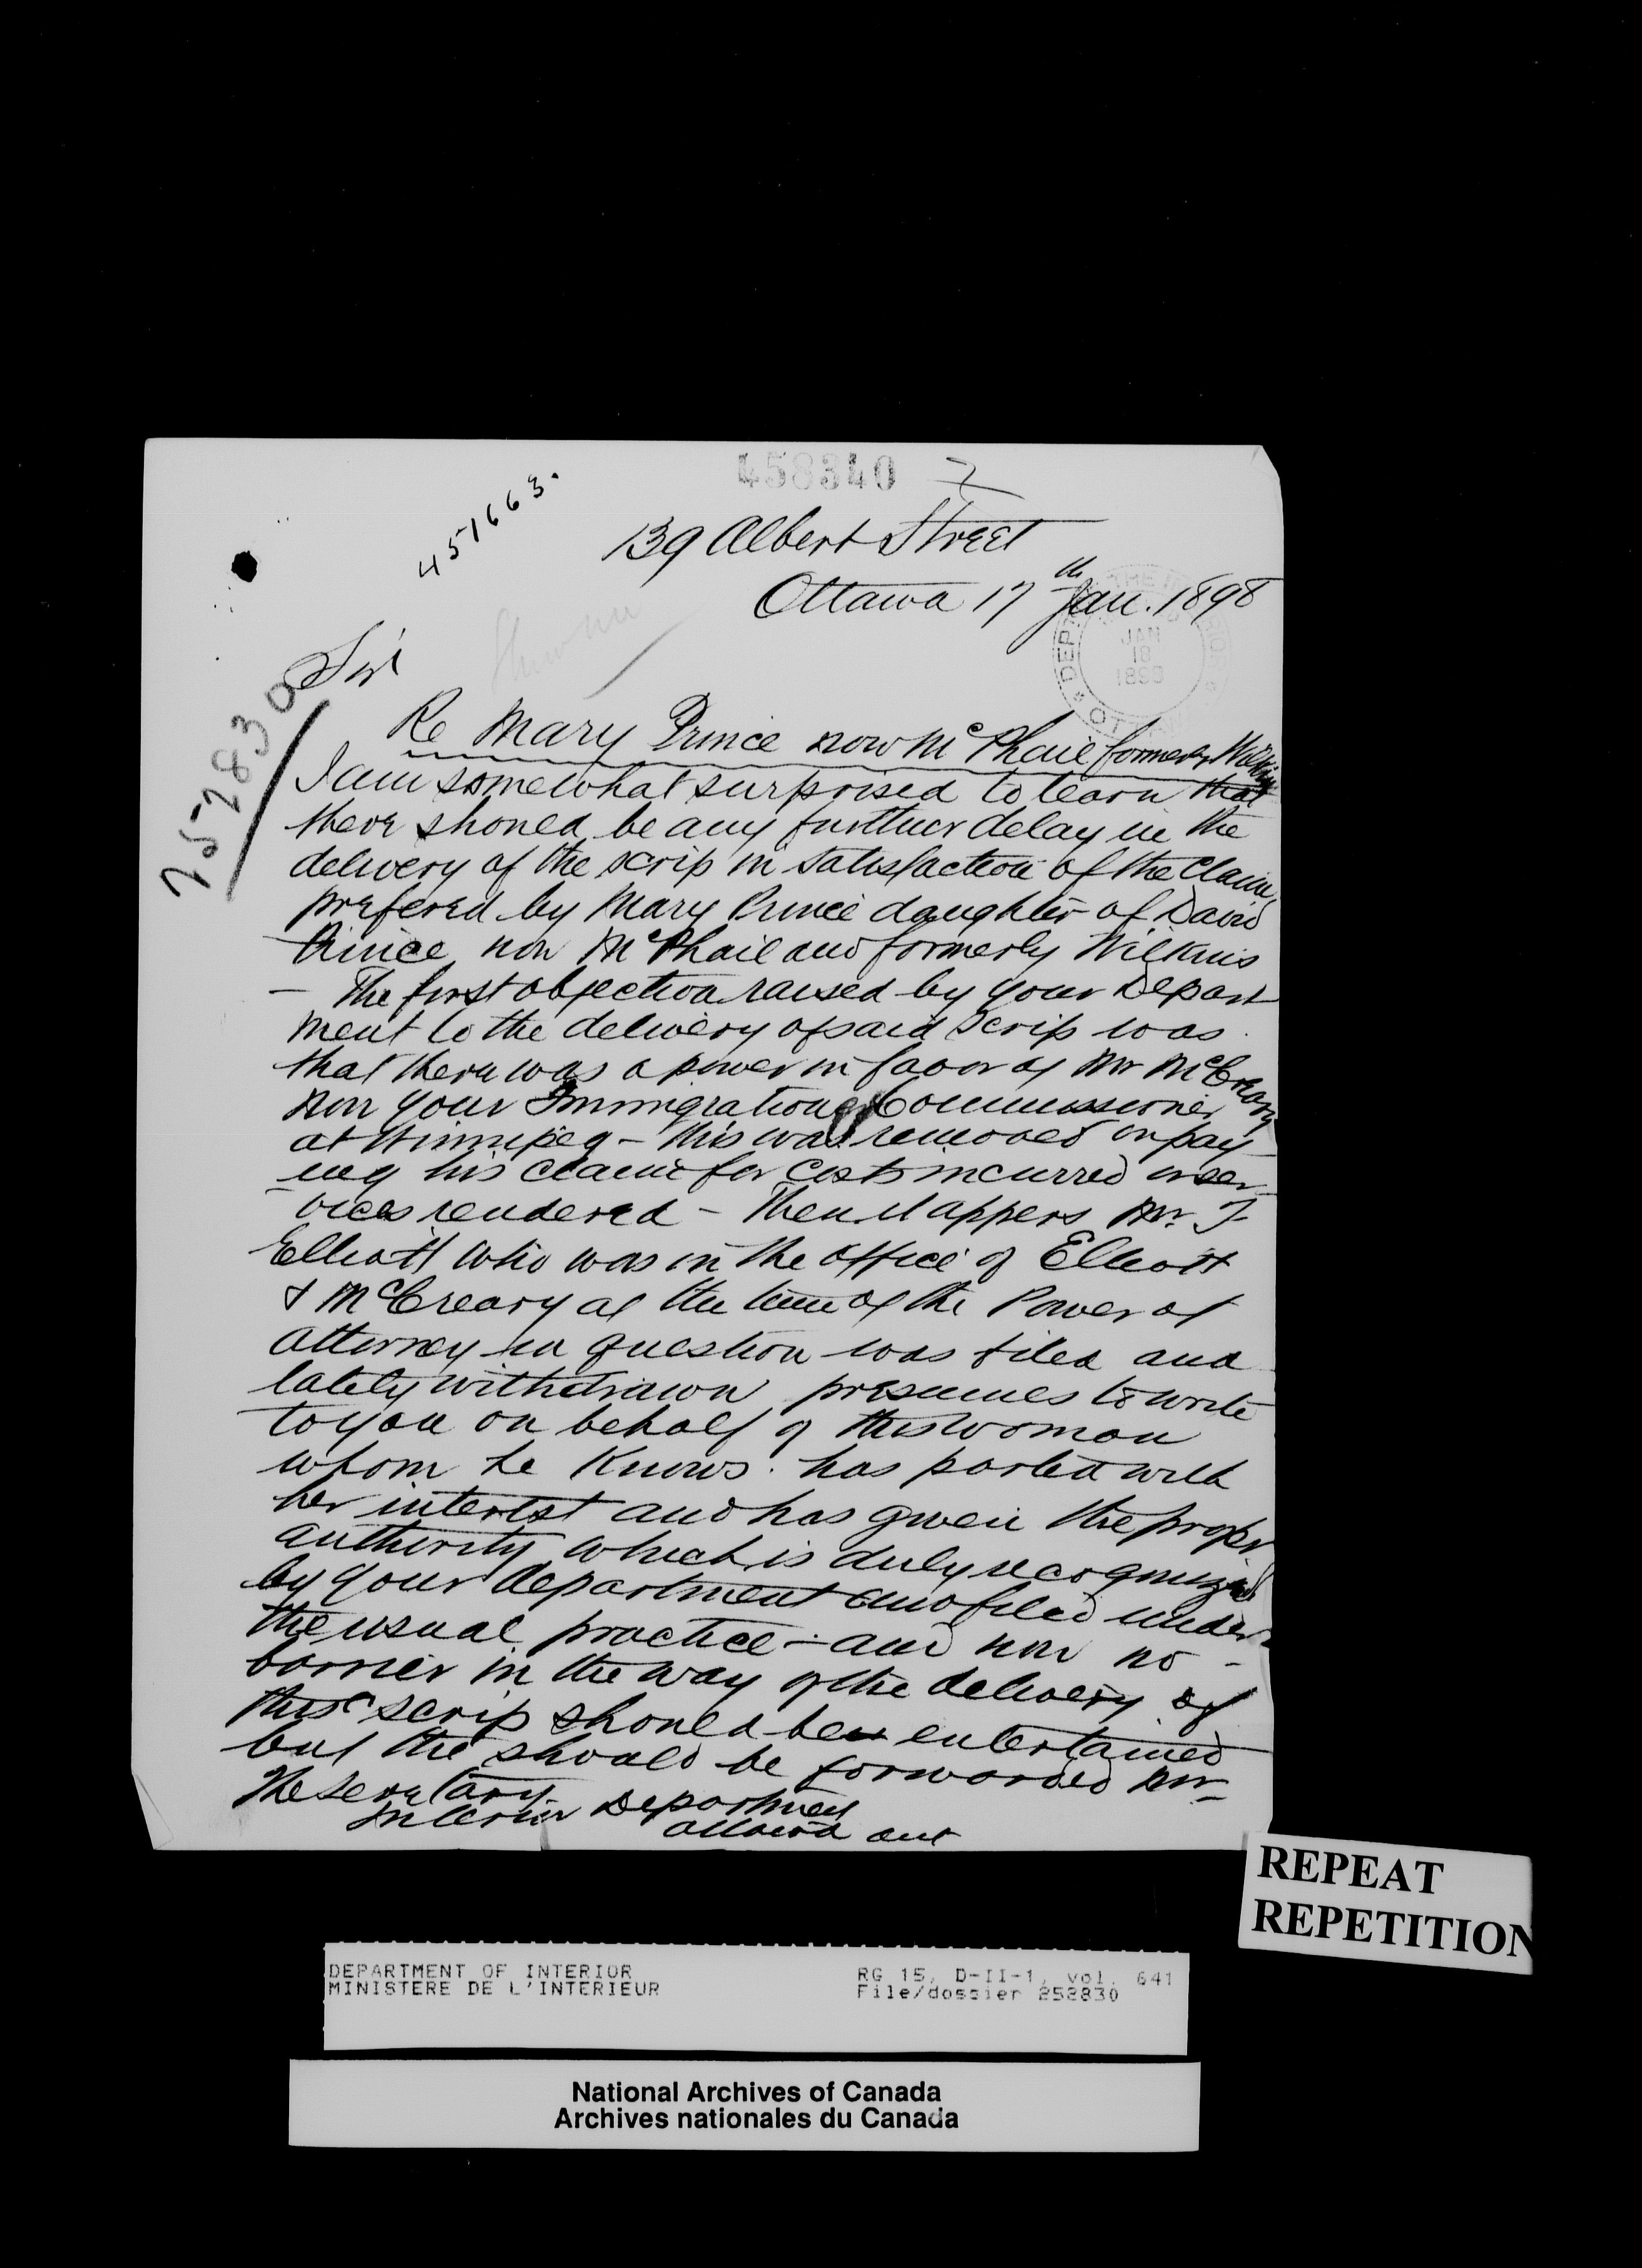 458340
451663.
139 Albert Street
Ottawa 17th Jan. 1898
JAN
18
1898
Sir
252830
Re Mary Prince now McPhail formerly Wilkins
I am somewhat surprised to learn that
there should be any further delay in the
delivery of the scrip in satisfaction of the claim
prefered by Mary Prince daughter of David
Prince now McPhail and formerly Wilkins
– The first objection raised by your Depart
ment to the delivery of said Scrip was
that there was a power in favor of Mr McCreary
now your Immigration Commissioner
at Winnipeg – this was removed on pay
ing his claim for costs incurred or ser-
vices rendered – Then it appers Mr. J
Elliott who was in the office of Elliott
& McCreary at the time of the Power of
attorney in question was filed and
lately withdrawn presumes to write
to you on behalf of this woman
whom he knows has parted with
her interest and has given the proper
authority which is duly recognized
by your department and filed under
the usual practice – and now no –
barrier in the way of the delivery of
this scrip should be entertained
but the should be forwarded now –
The Secretary
Interior Department
Ottawa Ont
REPEAT
REPETITION
DEPARTMENT OF INTERIOR
MINISTERE DE L'INTERIEUR
RG 15, D-II-1, vol. 641
File/dossier 252830
National Archives of Canada
Archives nationales du Canada